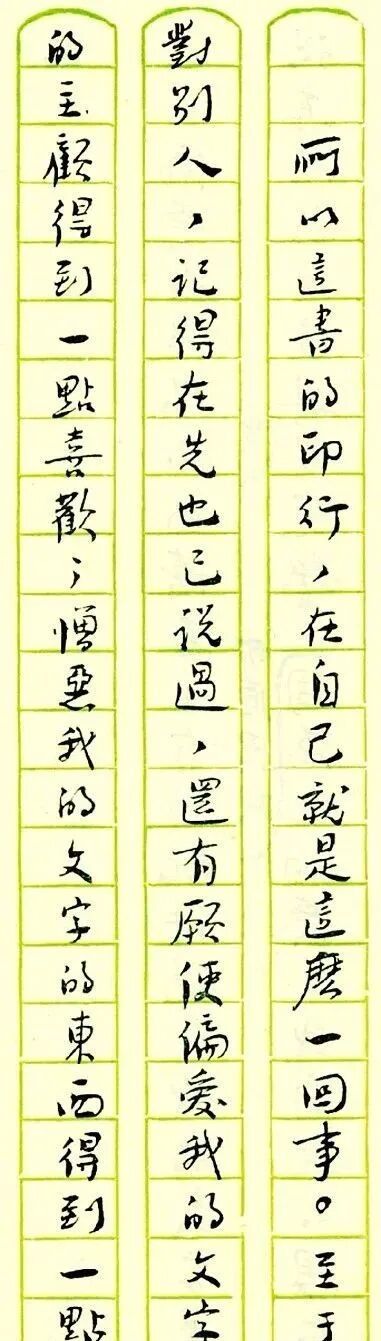 所以這書的印行，在自己就是這麽一回事。至于
對別人，記得在先也已說過，還有願使偏愛我的文字
的主顧得到一點喜歡；憎惡我的文字的東西得到一點